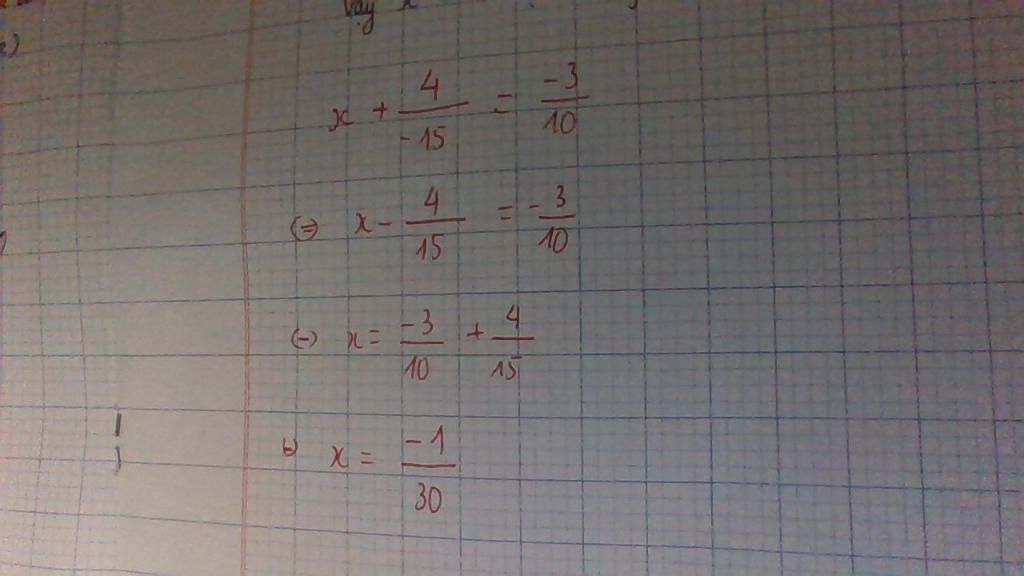 Vậy x
x + 4/-15 = -3/10
(=) x - 4/15 = -3/10
(-) x = -3/10 + 4/15
x = -1/30